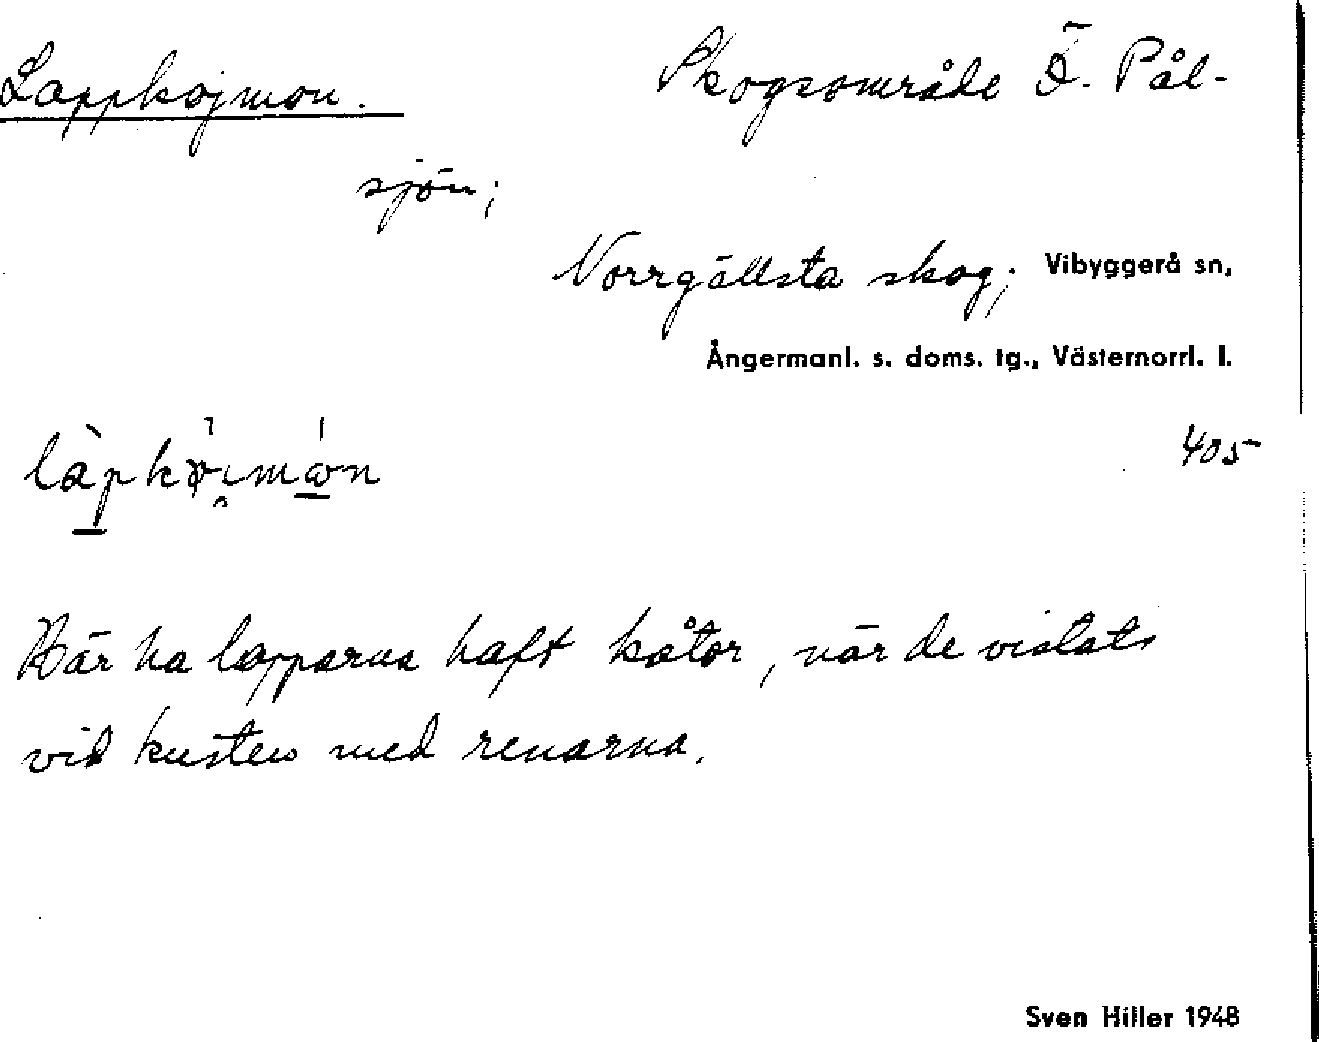 Lappkojmon. Skogsområde Ö. Pål-
sjön;
Norrgällsta skog; Vibyggerå sn,
Ångermanl. s. doms. tg., Västernorrl. l.
405
Här ha lapparna haft kåtor, när de vistats
vid kusten med renarna.
Sven Hiller 1948